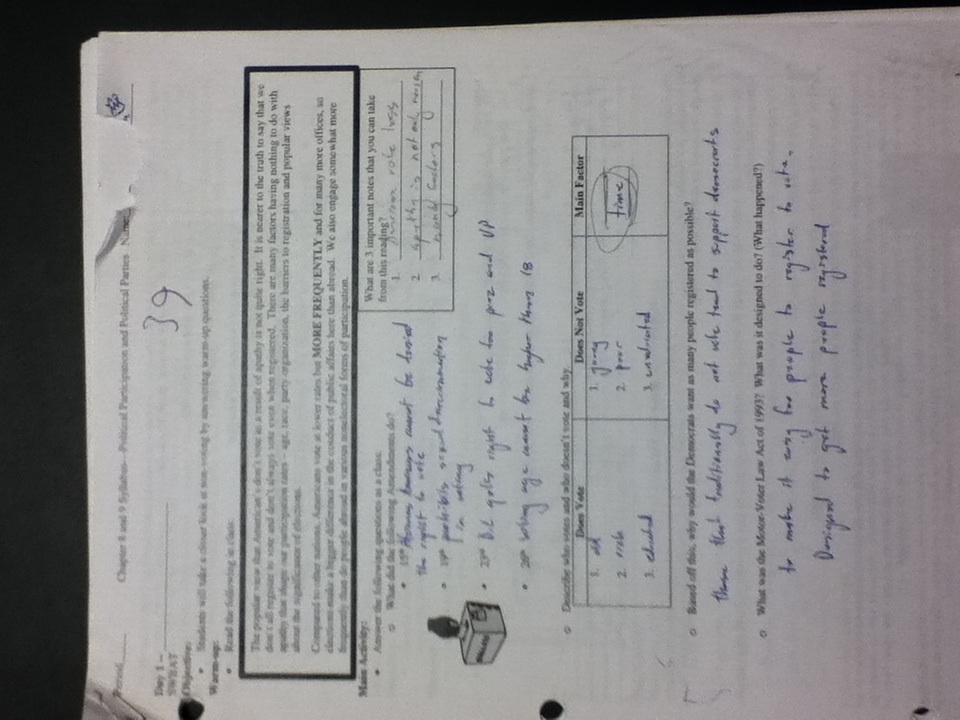 Period____ Chapter 8 and 9 Syllabus—Political Participation and Political Parties Name:
39
Day 1 – ____________
SWBAT
Objective:
• Students will take a closer look at non-voting by answering warm-up questions.
Warm-up:
• Read the following in class:
The popular view that American's don't vote as a result of apathy is not quite right. It is nearer to the truth to say that we
don't all register to vote and don't always vote even when registered. There are many factors having nothing to do with
apathy that shape our participation rates – age, race, party organization, the barriers to registration and popular views
about the significance of elections.
Compared to other nations, Americans vote at lower rates but MORE FREQUENTLY and for many more offices, so
elections make a bigger difference in the conduct of public affairs here than abroad. We also engage somewhat more
frequently than do people abroad in various nonelectoral forms of participation.
Main Activity:
• Answer the following questions as a class.
○ What did the following Amendments do?
• 15th cannot be denied
the right to vote
• 19th prohibits sexual discrimination
in voting
• 23rd D.C gets right to vote for prez and VP
• 26th voting age cannot be higher than 18
What are 3 important notes that you can take
from this reading?
1. American vote less
2. apathy is not only reason
3. many factors
BALLOTS
○ Describe who votes and who doesn't vote and why.
Does Vote Does Not Vote Main Factor
1. old 1. young Time
2. rich 2. poor
3. educated 3. uneducated
○ Based off this, why would the Democrats want as many people registered as possible?
those that traditionally do not vote tend to support democrats
○ What was the Motor-Voter Law Act of 1993? What was it designed to do? (What happened?)
to make it easy for people to register to vote.
Designed to get more people registered